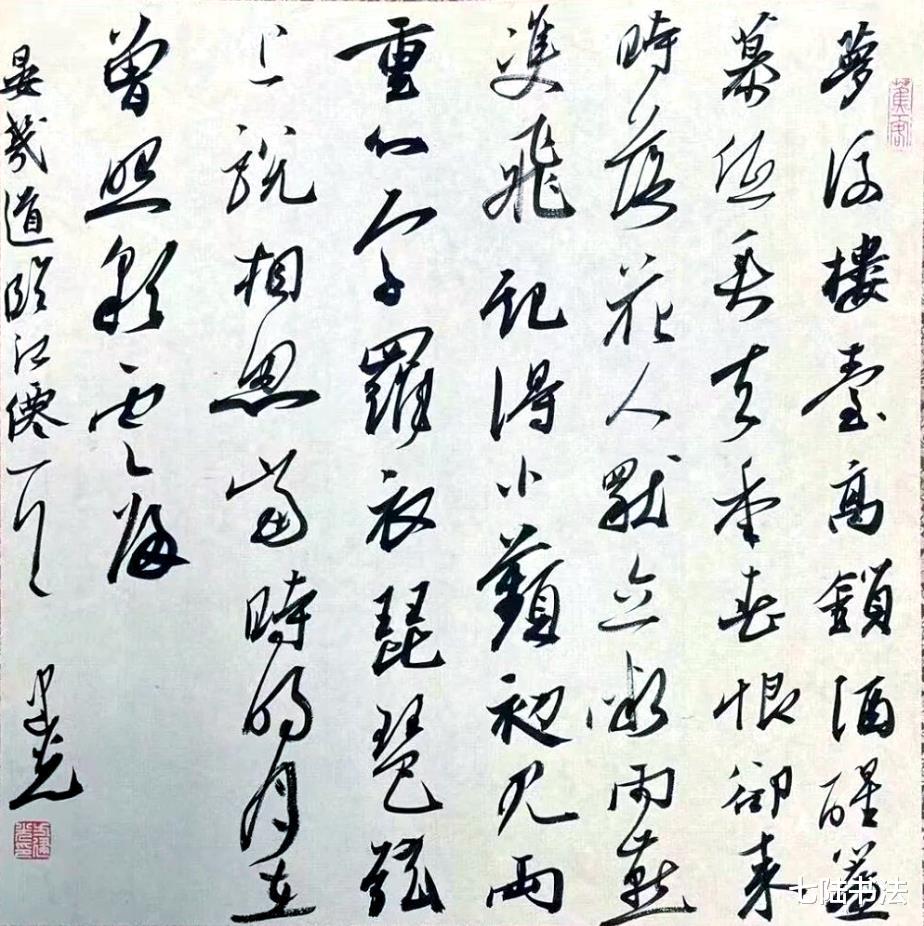 夢後樓臺高鎖酒醒簾
幕低垂去年春恨卻來
時落花人獨立微雨燕
雙飛記得小蘋初見兩
重心字羅衣琵琶絃
上說相思當時明月在
曾照彩雲歸
晏幾道臨江僊一首
七陆书法